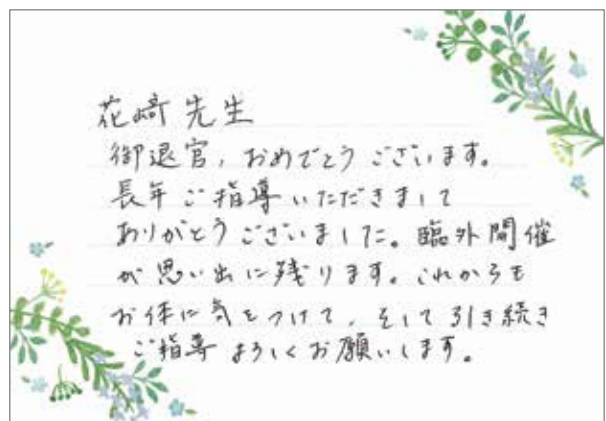 花﨑先生
御退官、おめでとうございます。
長年ご指導いただきまして
ありがとうございました。臨外開催
が思い出に残ります。これからも
お体に気をつけて、そして引き続き
ご指導よろしくお願いします。